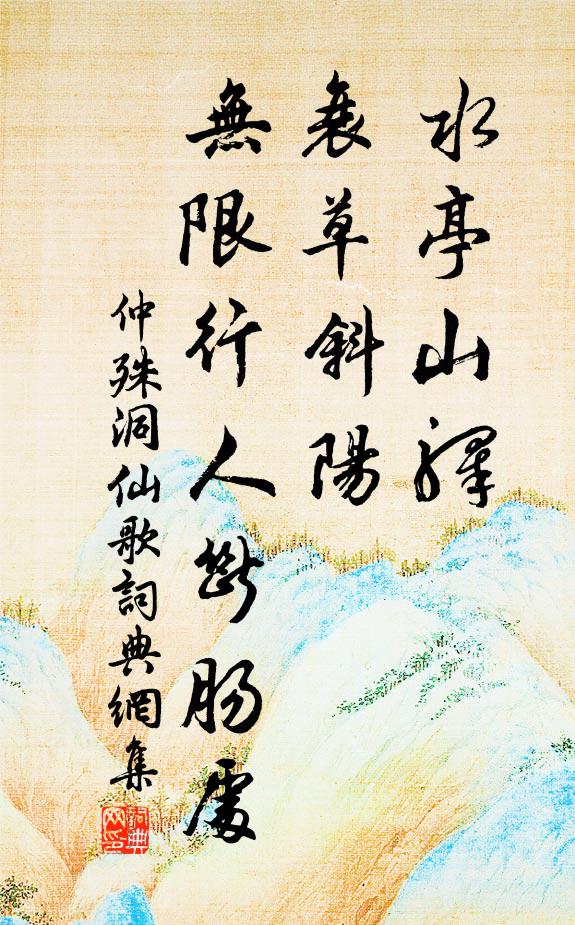 水亭山驛
衰草斜陽
無限行人斷腸處
仲殊洞仙歌詞典網集
詞典網印